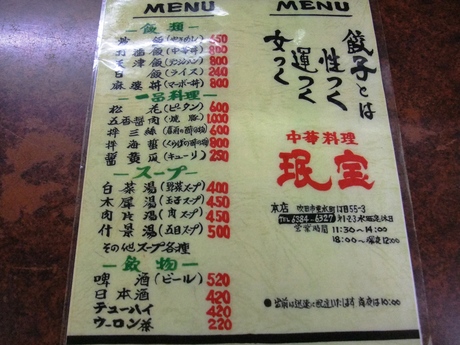 MENU
飯類
炒飯(やきめし) 650
五目飯(中華丼) 800
天津飯(テンシンハン) 800
白飯(ライス) 240
麻婆丼(マーボー丼) 800
一品料理
松花(ピータン) 600
五香醤肉(焼豚) 1000
拌三絲 600
拌海蜇 800
醤黄瓜(キューリ) 250
スープ
白菜湯(野菜スープ) 400
木犀湯(玉子スープ) 450
肉片湯(肉スープ) 450
什景湯(五目スープ) 500
その他スープ各種
飲物
啤酒(ビール) 520
日本酒 420
チューハイ 420
ウーロン茶 220
MENU
餃子とは
性つく
運つく
女つく
中華料理
珉宝
本店 吹田市垂水町1丁目55-3
TEL 6384-6327
営業時間 11:30~14:00
18:00~深夜12:00